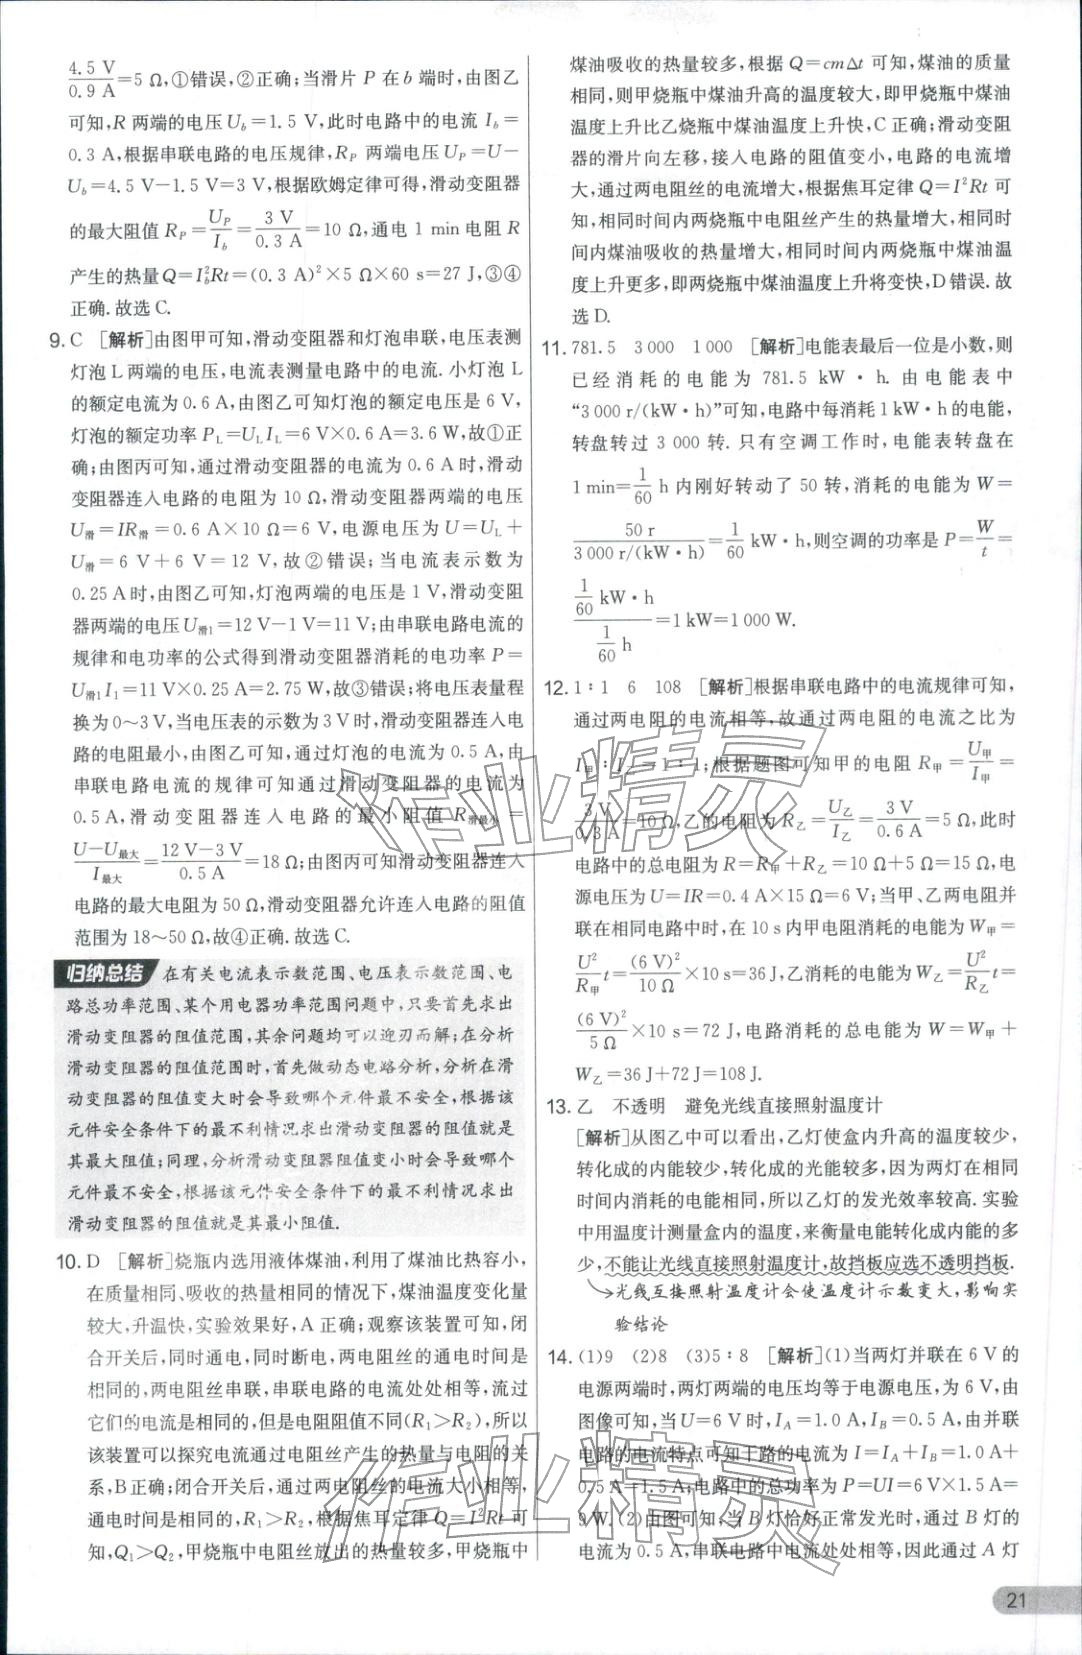 4.5 V/0.9 A=5 Ω,①错误,②正确;当滑片 P 在 b 端时,由图乙
可知,R 两端的电压 U_b=1.5 V,此时电路中的电流 I_b=
0.3 A,根据串联电路的电压规律,R_P 两端电压 U_P=U-
U_b=4.5 V-1.5 V=3 V,根据欧姆定律可得,滑动变阻器
的最大阻值 R_P=U_P/I_b=3 V/0.3 A=10 Ω,通电 1 min 电阻 R
产生的热量 Q=I_b²Rt=(0.3 A)²×5 Ω×60 s=27 J,③④
正确.故选 C.
9. C [解析]由图甲可知,滑动变阻器和灯泡串联,电压表测
灯泡 L 两端的电压,电流表测量电路中的电流.小灯泡 L
的额定电流为 0.6 A,由图乙可知灯泡的额定电压是 6 V,
灯泡的额定功率 P_L=U_LI_L=6 V×0.6 A=3.6 W,故①正
确;由图丙可知,通过滑动变阻器的电流为 0.6 A 时,滑动
变阻器连入电路的电阻为 10 Ω,滑动变阻器两端的电压
U_滑=IR_滑=0.6 A×10 Ω=6 V,电源电压为 U=U_L+
U_滑=6 V+6 V=12 V,故②错误;当电流表示数为
0.25 A 时,由图乙可知,灯泡两端的电压是 1 V,滑动变阻
器两端的电压 U_滑1=12 V-1 V=11 V;由串联电路电流的
规律和电功率的公式得到滑动变阻器消耗的电功率 P=
U_滑1I_1=11 V×0.25 A=2.75 W,故③错误;将电压表量程
换为 0~3 V,当电压表的示数为 3 V 时,滑动变阻器连入电
路的电阻最小,由图乙可知,通过灯泡的电流为 0.5 A,由
串联电路电流的规律可知通过滑动变阻器的电流为
0.5 A,滑动变阻器连入电路的最小阻值 R_滑最小=
U-U_最大/I_最大=12 V-3 V/0.5 A=18 Ω;由图丙可知滑动变阻器连入
电路的最大电阻为 50 Ω,滑动变阻器允许连入电路的阻值
范围为 18~50 Ω,故④正确.故选 C.
归纳总结 在有关电流表示数范围、电压表示数范围、电
路总功率范围、某个用电器功率范围问题中,只要首先求出
滑动变阻器的阻值范围,其余问题均可以迎刃而解;在分析
滑动变阻器的阻值范围时,首先做动态电路分析,分析在滑
动变阻器的阻值变大时会导致哪个元件最不安全,根据该
元件安全条件下的最不利情况求出滑动变阻器的阻值就是
其最大阻值;同理,分析滑动变阻器阻值变小时会导致哪个
元件最不安全,根据该元件安全条件下的最不利情况求出
滑动变阻器的阻值就是其最小阻值.
10. D [解析]烧瓶内选用液体煤油,利用了煤油比热容小,
在质量相同、吸收的热量相同的情况下,煤油温度变化量
较大,升温快,实验效果好,A 正确;观察该装置可知,闭
合开关后,同时通电,同时断电,两电阻丝的通电时间是
相同的,两电阻丝串联,串联电路的电流处处相等,流过
它们的电流是相同的,但是电阻阻值不同(R₁>R₂),所以
该装置可以探究电流通过电阻丝产生的热量与电阻的关
系,B 正确;闭合开关后,通过两电阻丝的电流大小相等,
通电时间是相同的,R₁>R₂,根据焦耳定律 Q=I²Rt 可
知,Q₁>Q₂,甲烧瓶中电阻丝放出的热量较多,甲烧瓶中
煤油吸收的热量较多,根据 Q=cmΔt 可知,煤油的质量
相同,则甲烧瓶中煤油升高的温度较大,即甲烧瓶中煤油
温度上升比乙烧瓶中煤油温度上升快,C 正确;滑动变阻
器的滑片向左移,接入电路的阻值变小,电路的电流增
大,通过两电阻丝的电流增大,根据焦耳定律 Q=I²Rt 可
知,相同时间内两烧瓶中电阻丝产生的热量增大,相同时
间内煤油吸收的热量增大,相同时间内两烧瓶中煤油温
度上升更多,即两烧瓶中煤油温度上升将变快,D 错误.故
选 D.
11. 781.5 3 000 1 000 [解析]电能表最后一位是小数,则
已经消耗的电能为 781.5 kW·h.由电能表中
“3 000 r/(kW·h)”可知,电路中每消耗 1 kW·h 的电能,
转盘转过 3 000 转.只有空调工作时,电能表转盘在
1 min=1/60 h 内刚好转动了 50 转,消耗的电能为 W=
50 r/3 000 r/(kW·h)=1/60 kW·h,则空调的功率是 P=W/t=
1/60 kW·h/1/60 h=1 kW=1 000 W.
12. 1∶1 6 108 [解析]根据串联电路中的电流规律可知,
通过两电阻的电流相等,故通过两电阻的电流之比为
I_甲∶I_乙=1∶1;根据题图可知甲的电阻 R_甲=U_甲/I_甲=
3 V/0.3 A=10 Ω,乙的电阻 R_乙=U_乙/I_乙=3 V/0.6 A=5 Ω,此时
电路中的总电阻为 R=R_甲+R_乙=10 Ω+5 Ω=15 Ω,电
源电压为 U=IR=0.4 A×15 Ω=6 V;当甲、乙两电阻并
联在相同电路中时,在 10 s 内甲电阻消耗的电能为 W_甲=
U²/R_甲t=(6 V)²/10 Ω×10 s=36 J,乙消耗的电能为 W_乙=U²/R_乙t=
(6 V)²/5 Ω×10 s=72 J,电路消耗的总电能为 W=W_甲+
W_乙=36 J+72 J=108 J.
13. 乙 不透明 避免光线直接照射温度计
[解析]从图乙中可以看出,乙灯使盒内升高的温度较少,
转化成的内能较少,转化成的光能较多,因为两灯在相同
时间内消耗的电能相同,所以乙灯的发光效率较高.实验
中用温度计测量盒内的温度,来衡量电能转化成内能的多
少,不能让光线直接照射温度计,故挡板应选不透明挡板.
→光线互接照射温度计会使温度计示数变大,影响实
验结论
14. (1)9 (2)8 (3)5∶8 [解析](1)当两灯并联在 6 V 的
电源两端时,两灯两端的电压均等于电源电压,为 6 V,由
图像可知,当 U=6 V 时,I_A=1.0 A,I_B=0.5 A,由并联
电路的电流特点可知干路的电流为 I=I_A+I_B=1.0 A+
0.5 A=1.5 A;电路中的总功率为 P=UI=6 V×1.5 A=
9 W.(2)由图可知,当 B 灯恰好正常发光时,通过 B 灯的
电流为 0.5 A,串联电路中电流处处相等,因此通过 A 灯
21
作业精灵
作业精灵